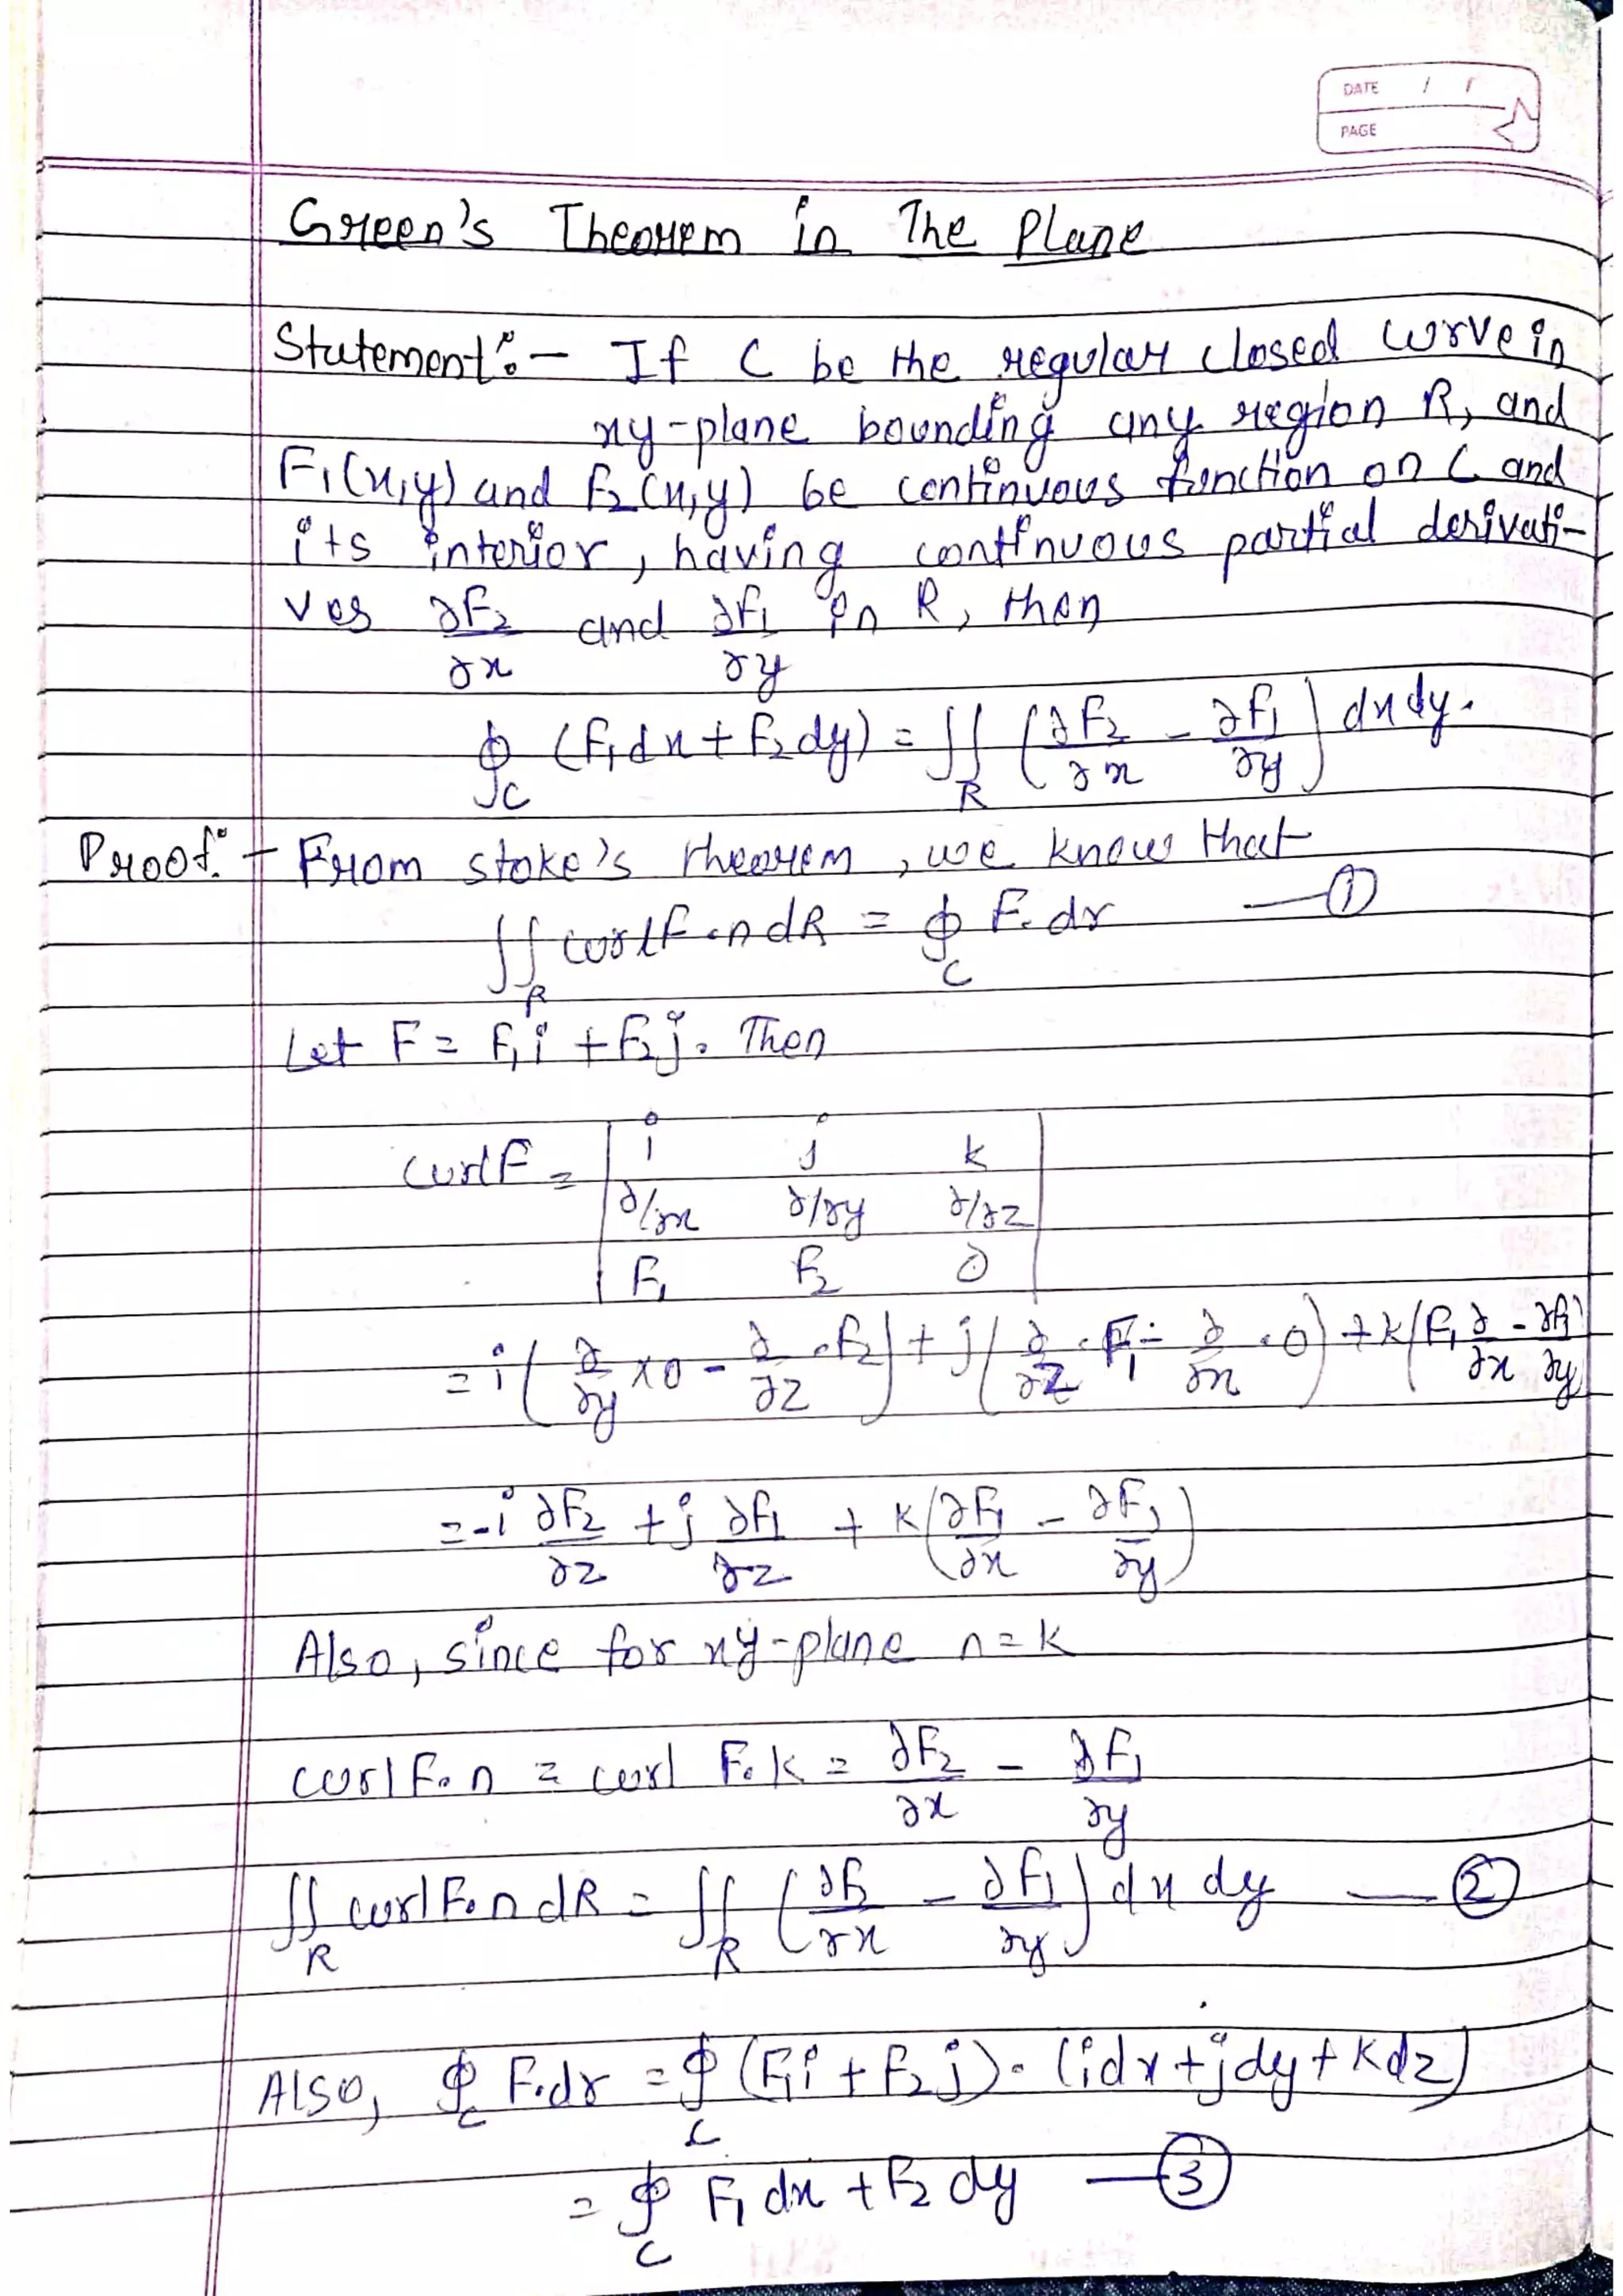 DATE / /
PAGE
Green's Theorem in The Plane
Statement :- If C be the regular closed curve in
xy-plane bounding any region R, and
F₁(x,y) and F₂(x,y) be continuous function on C and
its interior, having continuous partial derivati-
ves ∂F₂/∂x and ∂F₁/∂y in R, then
∮_C (F₁dx + F₂dy) = ∬_R (∂F₂/∂x - ∂F₁/∂y) dxdy.
Proof:- From stoke's theorem, we know that
∬_R curl F.n dR = ∮_C F.dr —①
Let F = F₁i + F₂j. Then
curl F = | i j k |
| ∂/∂x ∂/∂y ∂/∂z |
| F₁ F₂ 0 |
= i(∂/∂y × 0 - ∂/∂z . F₂) + j(∂/∂z . F₁ - ∂/∂x . 0) + k(F₁ ∂/∂x - ∂F₁/∂y)
= -i ∂F₂/∂z + j ∂F₁/∂z + k(∂F₁/∂x - ∂F₁/∂y)
Also, since for xy-plane n = k
curl F.n = curl F.k = ∂F₂/∂x - ∂F₁/∂y
∬_R curl F.n dR = ∬_R (∂F₂/∂x - ∂F₁/∂y) dx dy —②
Also, ∮_C F.dr = ∮_C (F₁i + F₂j).(idx + jdy + kdz)
= ∮_C F₁dx + F₂dy —③